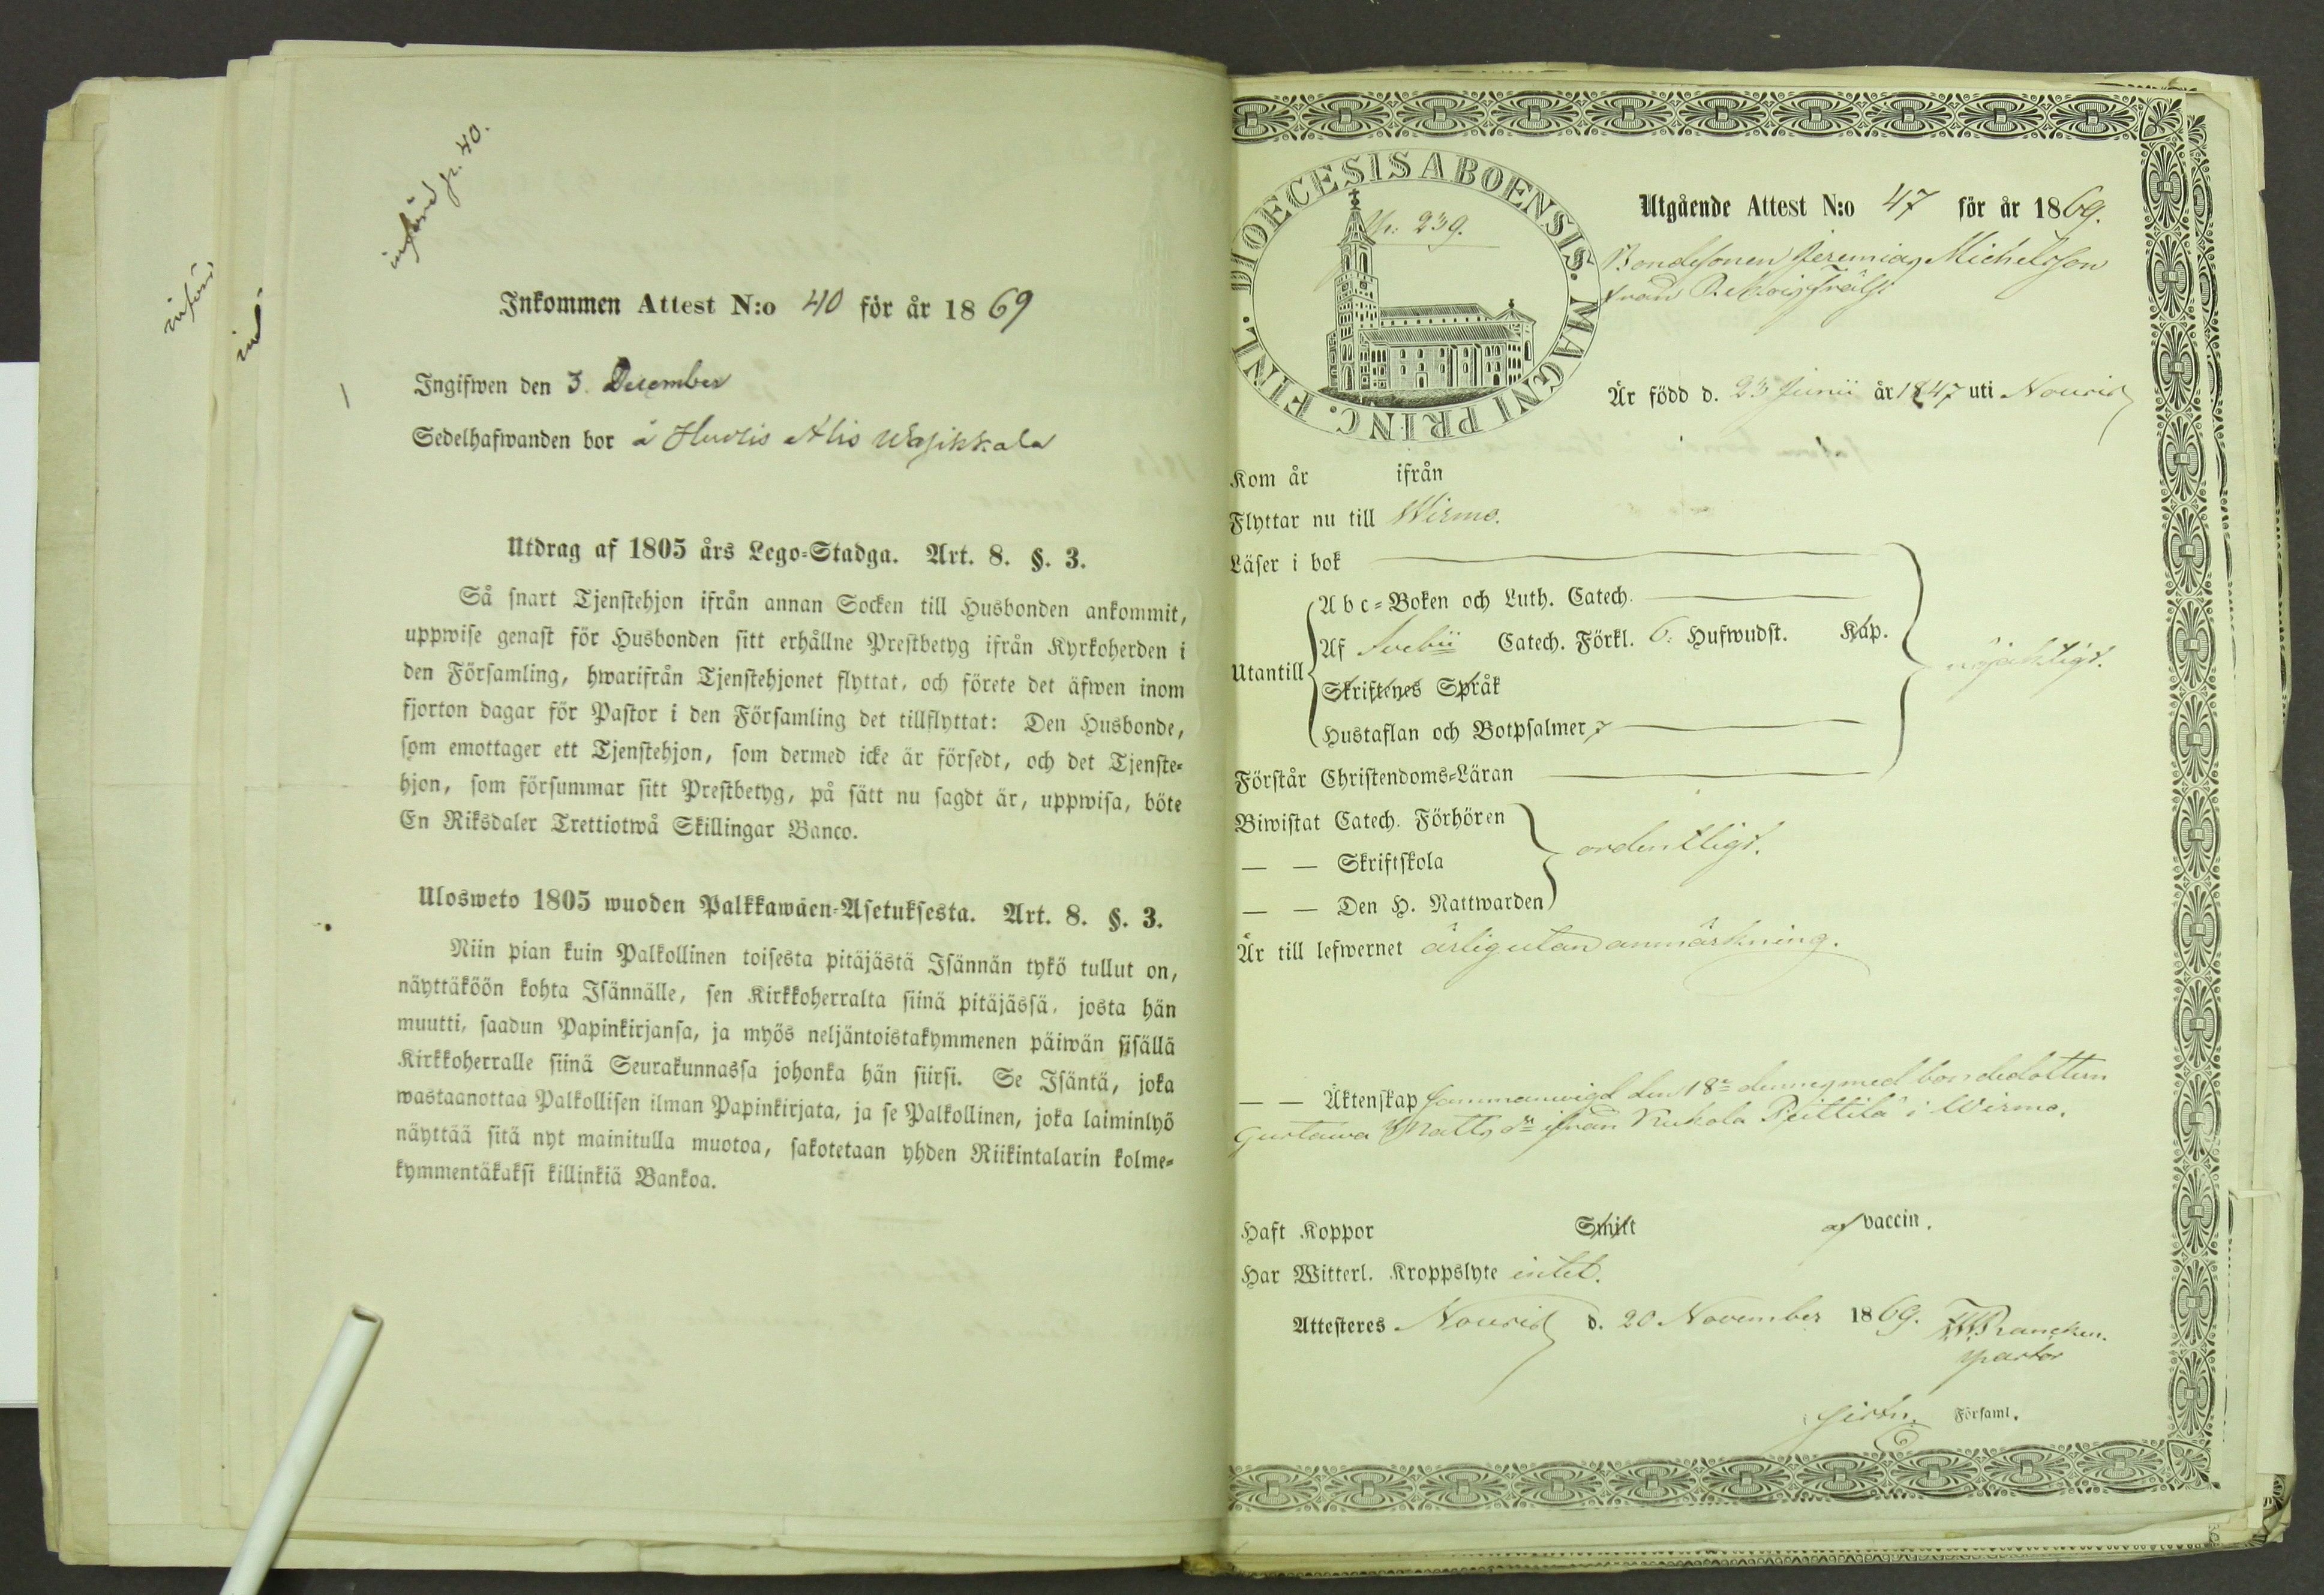 införd p. 40.
införd
inf
Inkommen Attest N:o 40 för år 1869
Ingifwen den 3. December
Sedelhafwanden bor å
Utdrag af 1805 års Lego-Stadga. Art. 8. §. 3.
Så snart Tjenstehjon ifrån annan Socken till Husbonden ankommit,
uppwise genast för Husbonden sitt erhållne Prestbetyg ifrån Kyrkoherden i
den Församling, hwarifrån Tjenstehjonet flyttat, och förete det äfwen inom
fjorton dagar för Pastor i den Församling det tillflyttat: Den Husbonde,
som emottager ett Tjenstehjon, som dermed icke är försedt, och det Tjenste-
hjon, som försummar sitt Prestbetyg, på sätt nu sagdt är, uppwisa, böte
En Riksdaler Trettiotwå Skillingar Banco.
Ulosweto 1805 wuoden Palkkawäen-Asetuksesta. Art. 8. §. 3.
Niin pian kuin Palkollinen toisesta pitäjästä Isännän tykö tullut on,
näyttäköön kohta Isännälle, sen Kirkkoherralta siinä pitäjässä, josta hän
muutti, saadun Papinkirjansa, ja myös neljäntoistakymmenen päiwän sisällä
Kirkkoherralle siinä Seurakunnassa johonka hän siirsi. Se Isäntä, joka
wastaanottaa Palkollisen ilman Papinkirjata, ja se Palkollinen, joka laiminlyö
näyttää sitä nyt mainitulla muotoa, sakotetaan yhden Riikintalarin kolme-
kymmentäkaksi killinkiä Bankoa.
DIOECESIS ABOENSIS. MAGNI PRINC. FINL.
239.
Utgående Attest N:o 47 för år 1869.
Bondesonen Jeremias Michelsson
från
Är född d. 23 Junii år 1847 uti Nousis
Kom år ifrån
Flyttar nu till Wirmo.
Läser i bok
Utantill
Abc-Boken och Luth. Catech.
Af Svebii Catech. Förkl. 6. Hufwudst. Kap.
Skriftenes Språk
Hustaflan och Botpsalmer
nöjaktigt.
Förstår Christendoms-Läran
Biwistat Catech. Förhören
— — Skriftskola
— — Den H. Nattwarden
ordentligt.
Är till lefwernet ärlig utan anmärkning.
— — Äktenskap sammanwigd den 18de dennes med bondedottern
Gustawa Matts dr ifrån Kukola Peittilä i Wirmo.
Haft Koppor Smitt af vaccin.
Har Witterl. Kroppslyte intet.
Attesteres Nousis d. 20 November 1869.
Pastor
Församl.